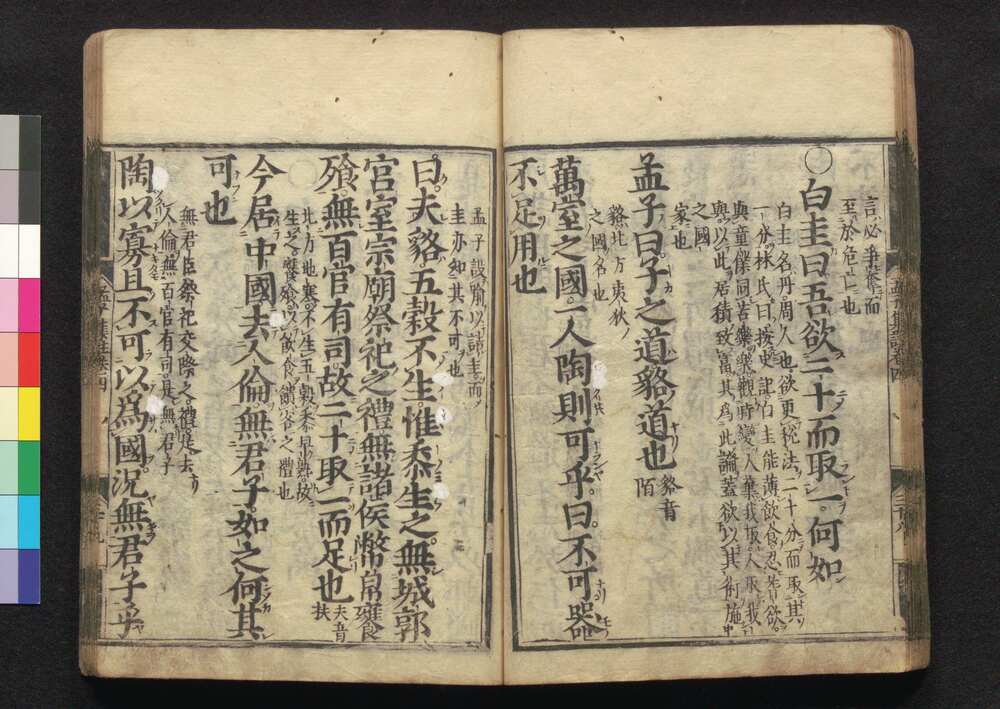 言必爭奪而
至於危亡也
○白圭曰吾欲二十而取一何如
白圭名丹周人也欲更稅法二十分而取其
一分林氏曰按史記白圭能薄飲食忍嗜欲
與童僕同苦樂樂觀時變人棄我取人取我
與以此居積致富其爲此論蓋欲以其術施
之國
家也
孟子曰子之道貉道也貉音陌
貉北方夷狄
之國名也
萬室之國一人陶則可乎曰不可器
不足用也
孟子設喻以詰圭而
圭亦知其不可也
曰夫貉五穀不生惟黍生之無城郭
宮室宗廟祭祀之禮無諸侯幣帛饔
飧無百官有司故二十取一而足也夫音扶
北方地寒不生五穀黍早熟故
生之饔飧以飲食饋客之禮也
今居中國去人倫無君子如之何其
可也
無君臣祭祀交際之禮是去
人倫無百官有司是無君子
陶以寡且不可以爲國況無君子乎